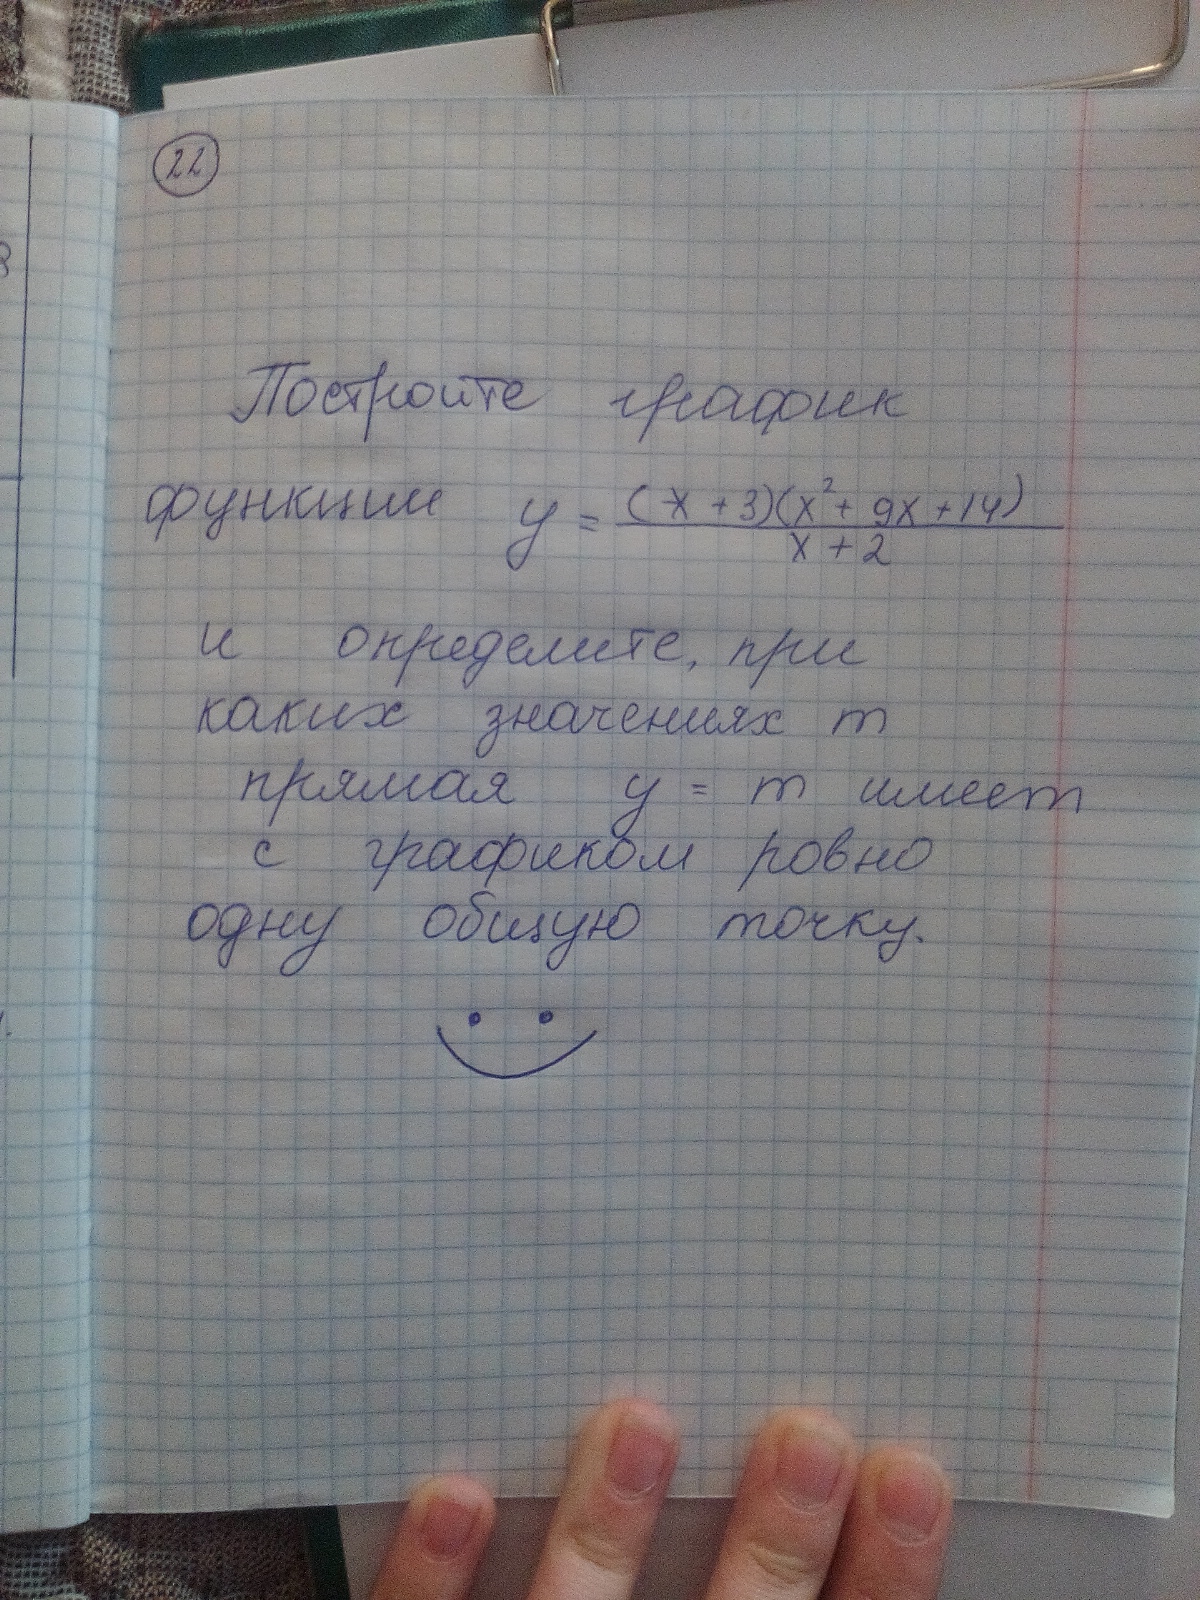 22
Постройте график
функции y = (x + 3)(x² + 9x + 14) / x + 2
и определите, при
каких значениях m
прямая y = m имеет
с графиком ровно
одну общую точку.